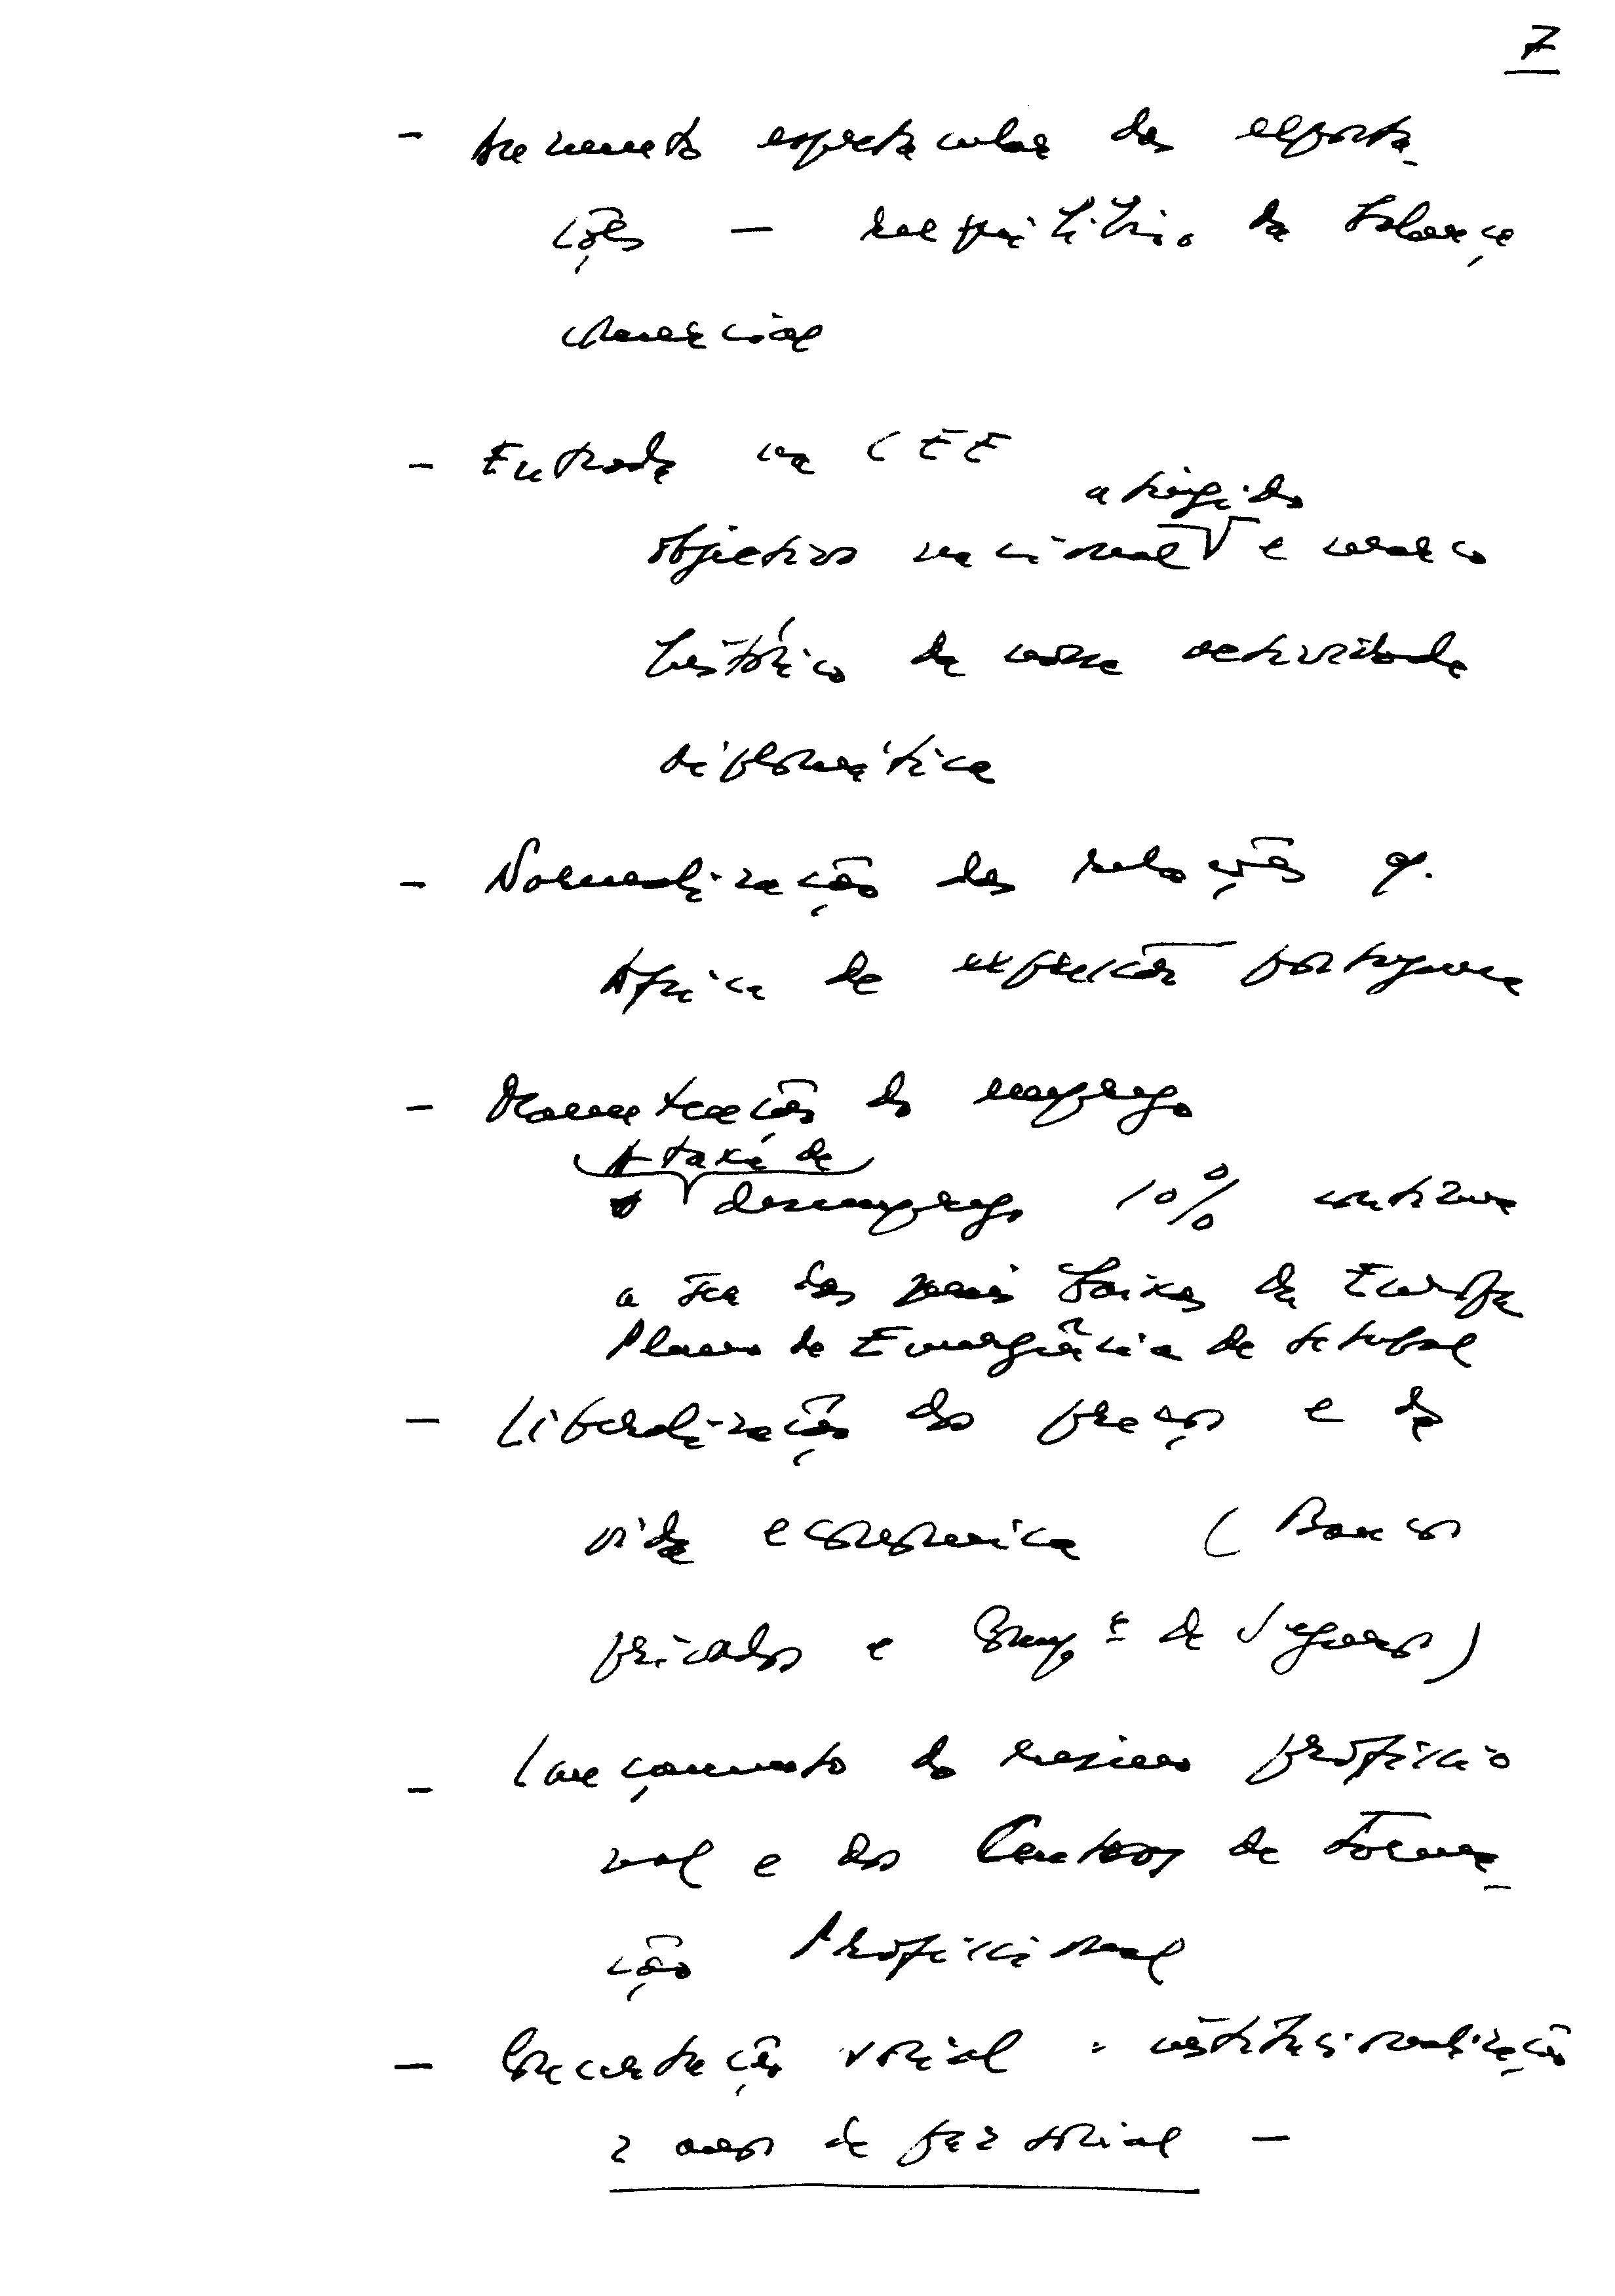 7
- Aumento espectacular das exporta_
ções — reequilíbrio da balança
comercial
- Entrada na CEE
atingido
objectivo nacional e marco
histórico da nossa actividade
diplomática
- Normalização das relações c/
África de expressão portuguesa
- Manutenção do emprego
A taxa de
desemprego 10% continua
a ser das mais baixas da Europa
Plano de Emergência de Setubal
- Liberalização dos preços e da
vida economica (Bancos
privados e Comp.ª de Seguros)
- Lançamento do ensino proficio
nal e dos Centros de Forma_
ção Proficional
- Concertação social - institucionalização
2 anos de paz social —